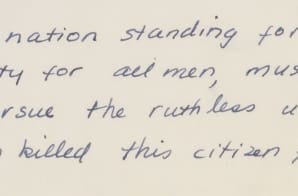 nation standing for
ty for all men, mus
rsue the ruthless u
killed this citizen